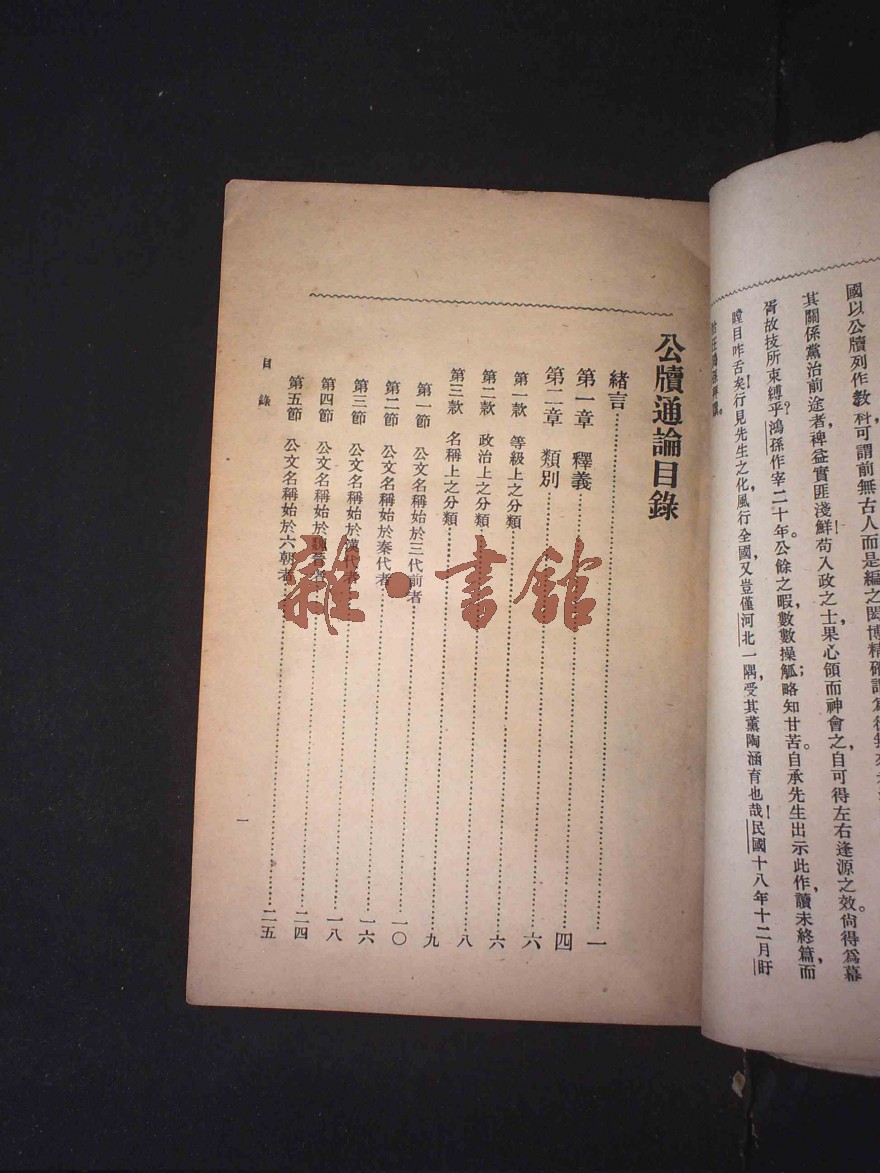 國以公牘列作教科可謂前無古人而是編之閎博精確
其關係黨治前途者裨益實匪淺鮮苟入政之士果心領而神會之，自可得左右逢源之效。尙得爲幕
胥故技所束縛乎？鴻孫作宰二十年。公餘之暇，數數操觚；略知甘苦。自承先生出示此作，讀未終篇，而
瞠目咋舌矣！行見先生之化風行全國，又豈僅河北一隅，受其薰陶涵育也哉！民國十八年十二月盱
公牘通論目錄
緒言……一
第一章　釋義……四
第二章　類別……六
第一款　等級上之分類……六
第二款　政治上之分類……八
第三款　名稱上之分類……九
第一節　公文名稱始於三代前者……一〇
第二節　公文名稱始於秦代者……一六
第三節　公文名稱始於漢代者……一八
第四節　公文名稱始於魏晉者……二四
第五節　公文名稱始於六朝者……二五
目錄
一
雜·書館